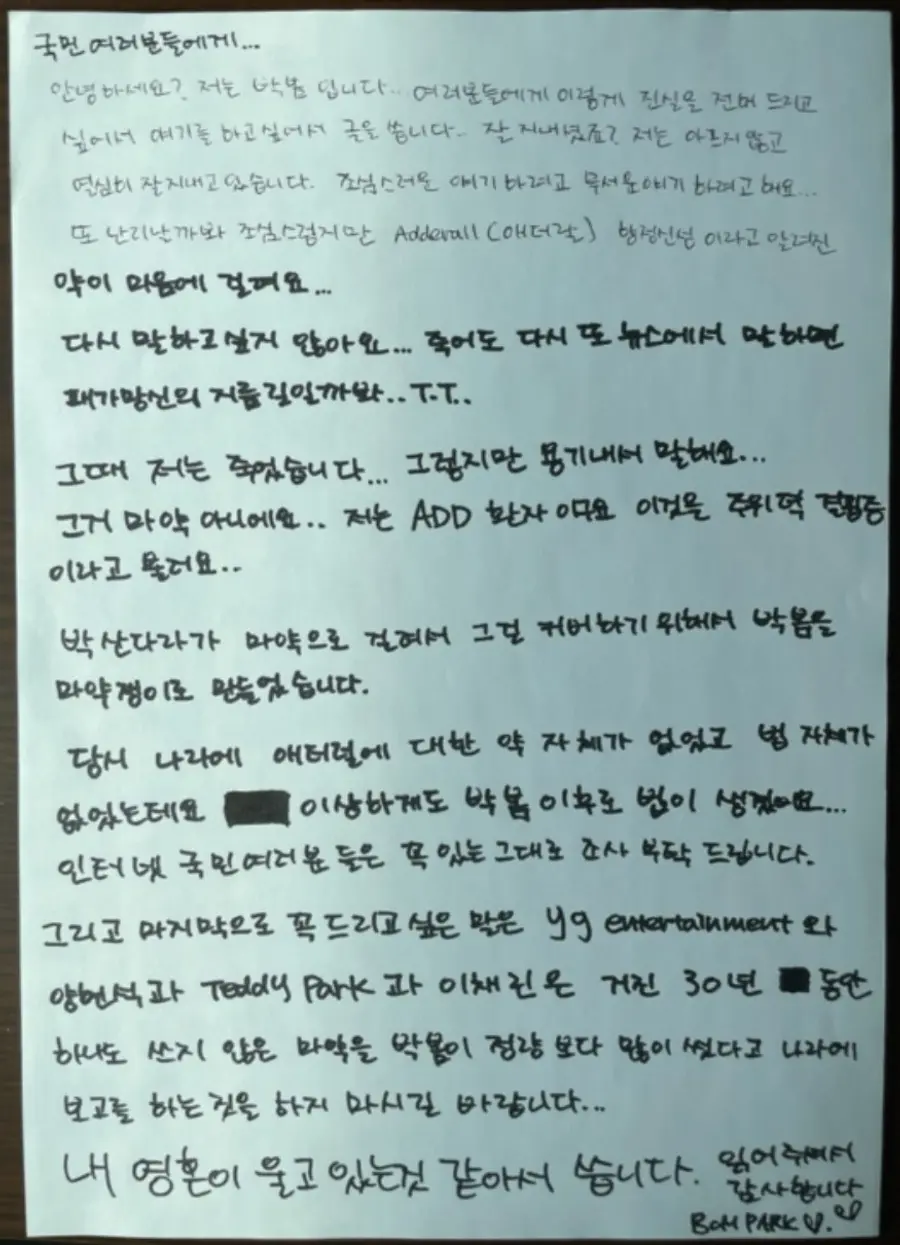 국민 여러분들에게...
안녕하세요? 저는 박봄 입니다.. 여러분들에게 이렇게 진실을 전해 드리고
싶어서 얘기를 하고싶어서 글을 씁니다.. 잘 지내셨죠? 저는 아프지않고
열심히 잘지내고 있습니다. 조심스러운 얘기 하려고 무서운얘기 하려고 해요...
또 난리난까봐 조심스럽지만 Adderall (애더랄) 향정신성 이라고 알려진
약이 마음에 걸려요...
다시 말하고싶지 않아요... 죽어도 다시 또 뉴스에서 말하면
패가망신의 지름길일까봐.. T.T..
그때 저는 죽었습니다... 그렇지만 용기내서 말해요...
그거 마약 아니에요.. 저는 ADD 환자 이구요 이것은 주위력 결핍증
이라고 불러요..
박산다라가 마약으로 걸려서 그걸 커버하기 위해서 박봄을
마약쟁이로 만들었습니다.
당시 나라에 애터럴에 대한 약 자체가 없었고 법 자체가
없었는데요 이상하게도 박봄 이후로 법이 생겼어요...
인터넷 국민여러분 들은 꼭 있는그대로 조사 부탁 드립니다.
그리고 마지막으로 꼭드리고싶은 말은 yg entertainment 와
양현석과 Teddy Park 과 이채린은 거진 30년 동안
하나도 쓰지 않은 마약을 박봄이 정량 보다 많이 썼다고 나라에
보고를 하는것을 하지 마시길 바랍니다...
내 영혼이 울고 있는것 같아서 씁니다. 읽어주셔서
감사합니다
BOM PARK ♡. ♡